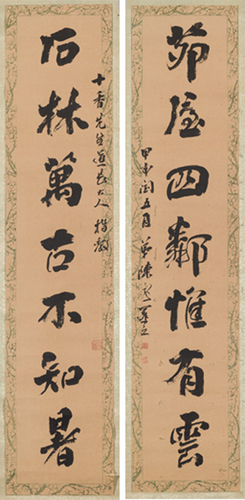 茆屋四鄰惟有雲
甲申閏五月 弟陳
十香先生道長大人指教
石林萬古不知暑